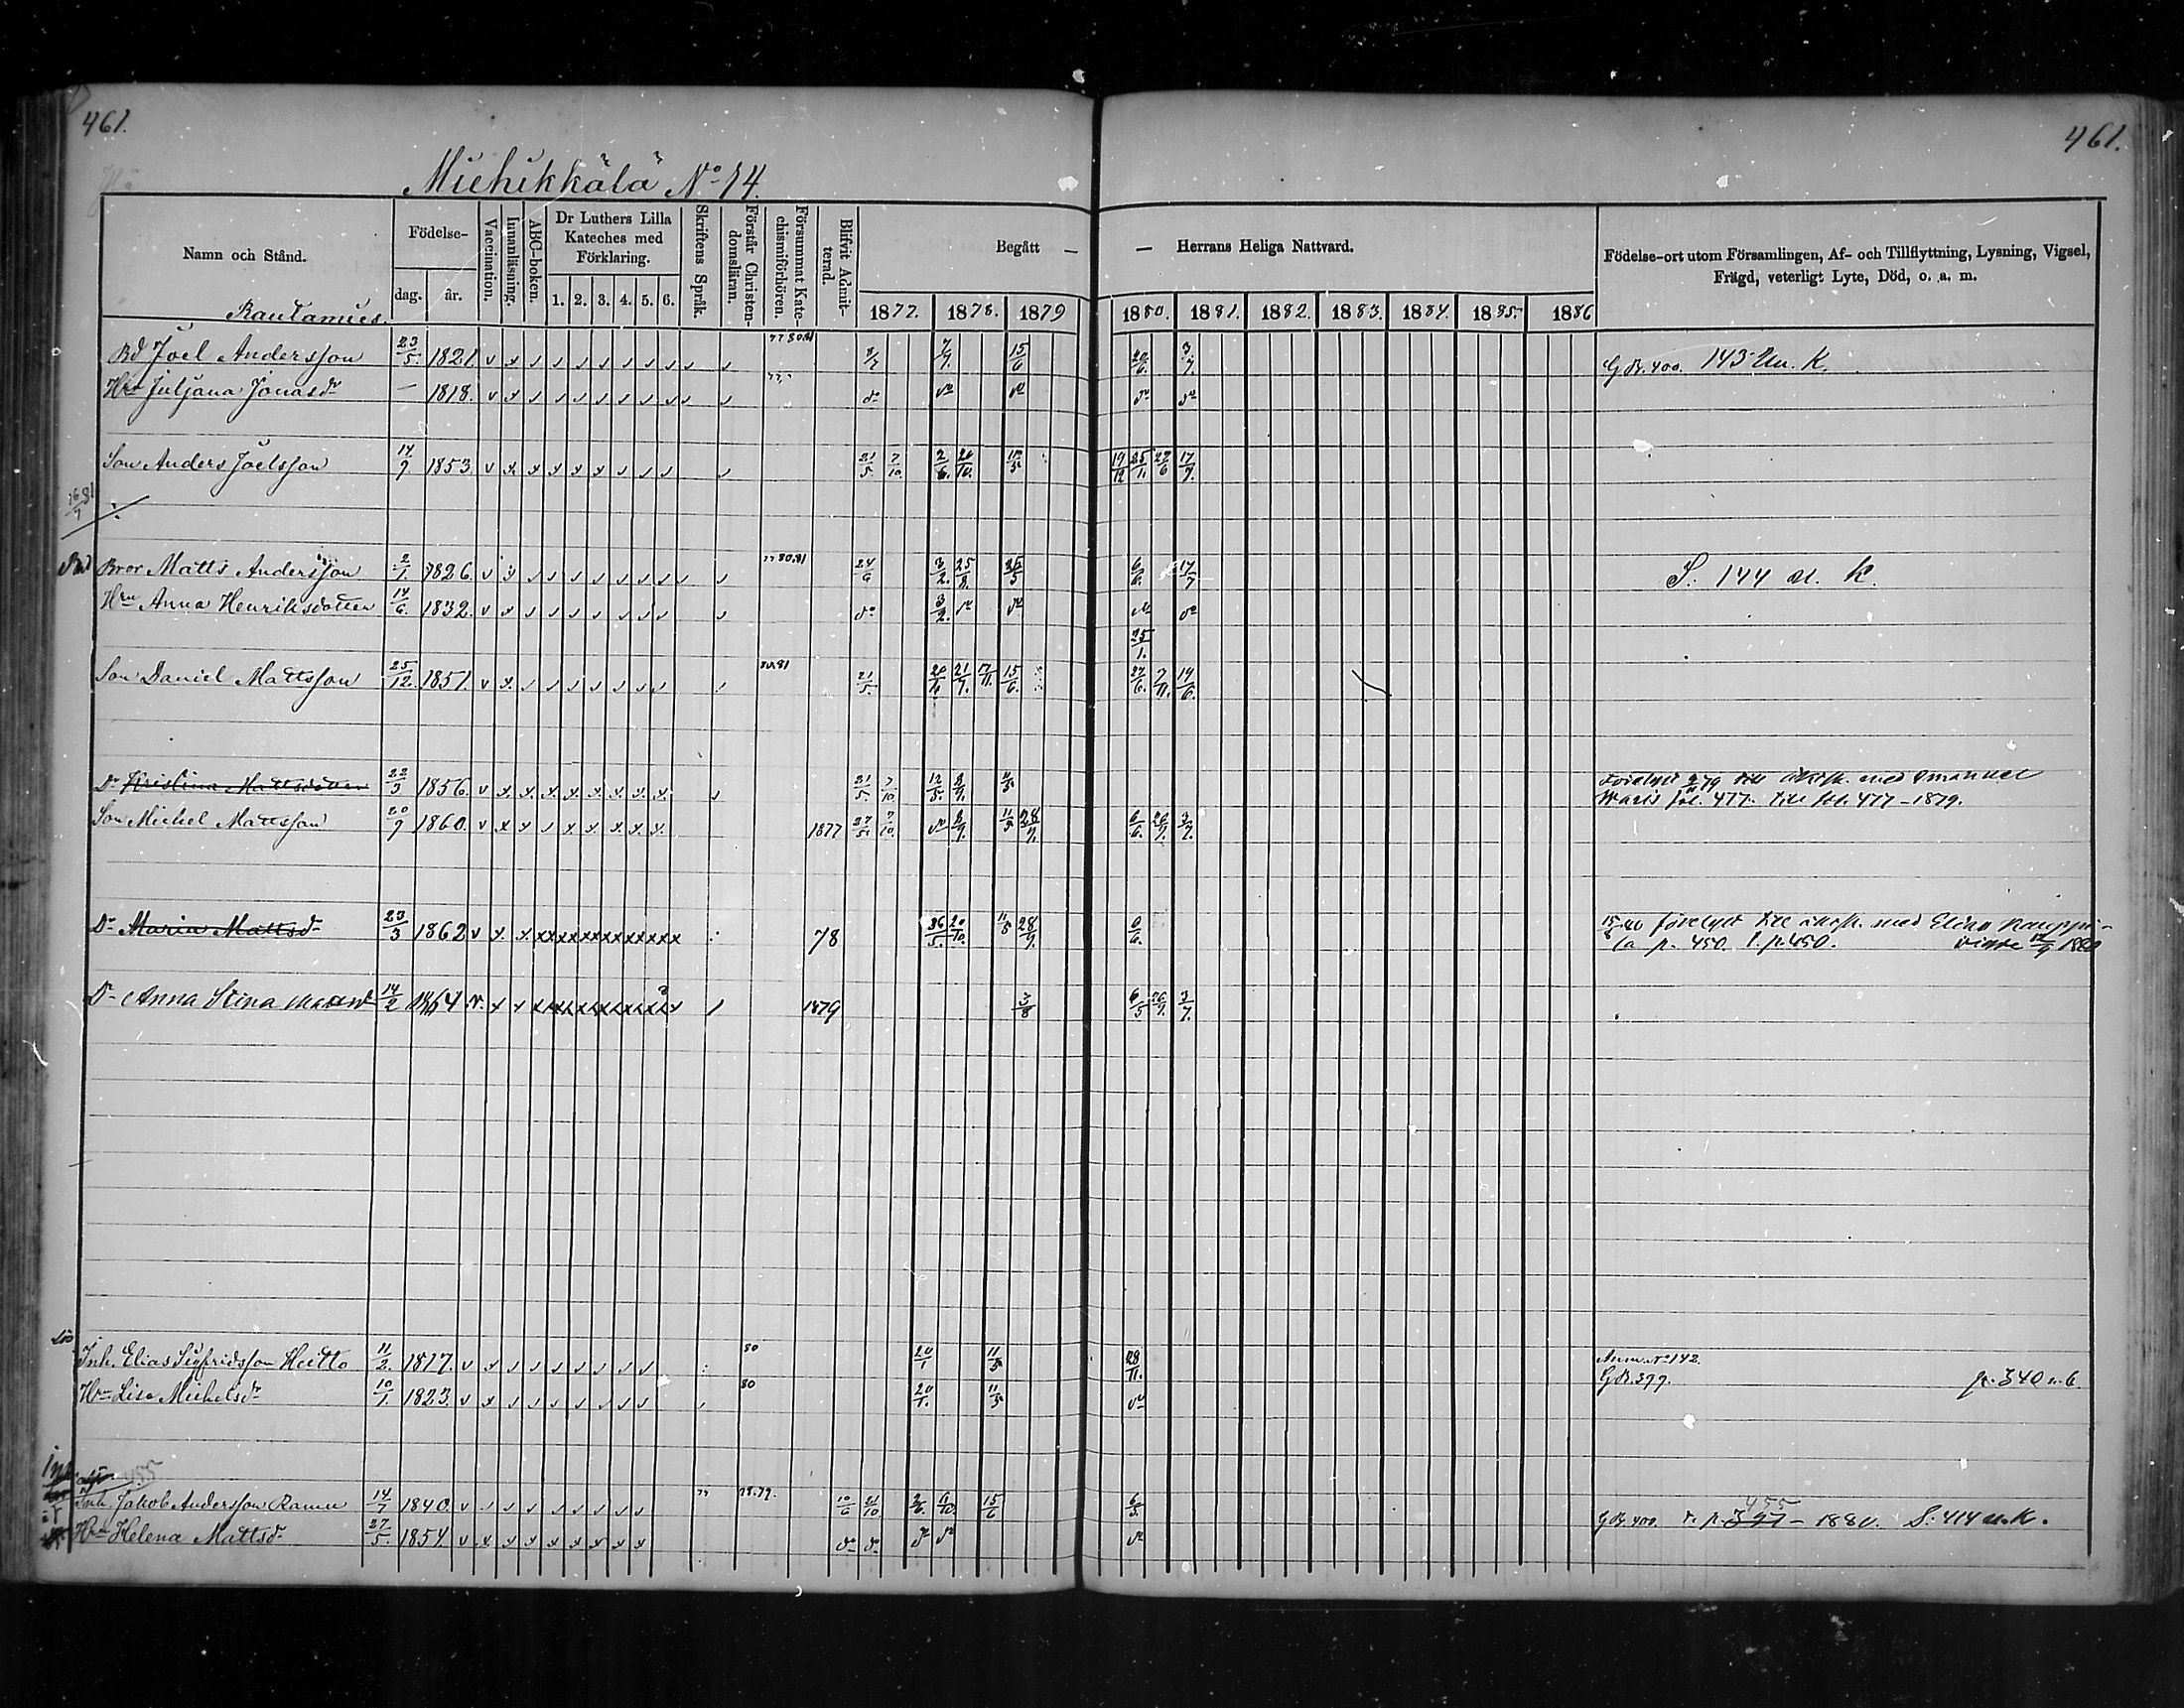 461.
461.
Miehikkälä No 14.
Namn och Stånd.
Födelse-
dag. år.
Vaccination.
Innanläsning.
ABC-boken.
Dr Luthers Lilla Kateches med Förklaring.
1. 2. 3. 4. 5. 6.
Skriftens Språk.
Förstår Christendomsläran.
Försummat Katechismiförhören.
Blifvit Admitterad.
Begått — — Herrans Heliga Nattvard.
1877. 1878. 1879 1880. 1881. 1882. 1883. 1884. 1885. 1886
Födelse-ort utom Församlingen, Af- och Tillflyttning, Lysning, Vigsel,
Frägd, veterligt Lyte, Död, o. a. m.
Rautamies.
Bd Joel Andersson 23/5. 1821. 77 80.81 7/9. 15/6 20/6. 3/7. G.B. 400. 143 u. K.
Hru Juljana Jonasdr — 1818. do do do do do
Son Anders Joelsson 14/9 1853. 21/5. 7/10. 2/6. 20/10. 11/5 19/12 25/1. 27/6 17/7.
Bror Matts Andersson 2/1. 1826. 77 80.81 24/6 3/2. 25/8. 25/5 6/6. 17/7 S. 144 u. K.
Hru Anna Henriksdotter 14/6. 1832. do 3/2. do do do do
25/1.
Son Daniel Mattsson 25/12. 1851. 80.81 21/5. 21/7. 17/11. 15/6. 27/6. 7/11. 19/6.
Dr Kristina Mattsdotter 22/3 1856. 21/5. 7/10. 12/5. 8/9. 11/5 till äktsk. med Emanuel
Waris fol. 477. till fol. 477-1879.
Son Michel Mattsson 20/9 1860. 1877 27/5. 7/10. do 8/9. 11/5 28/9. 6/6. 26/9. 3/7.
Dr Maria Mattsdr 23/3 1862 78 26/5. 20/10. 11/5 28/9. 6/6. förelyst till äktsk. med Elias Kauppi-
la p. 450. t. p. 450. vigde 12/9 1880
Dr Anna Stina Mattsd 14/2 1864 1879 3/8 6/5 26/9. 3/7.
Inh. Elias Sigfridsson Heitto 11/2. 1817. 80 20/1 11/5 28/11. Anm. No 142.
G.B. 377. p. 340 u. b.
Hru Lisa Michelsdr 10/1. 1823. 80 20/1. 11/5 do
455
Inh. Jakob Andersson Ramu 14/7 1840. 78.79. 10/6 21/10 2/6. 6/10. 15/6 6/5. G.B. 400. t. p. 397 455 - 1880. S. 414 u. K.
Hru Helena Mattsdr 27/5. 1854. do do do do do